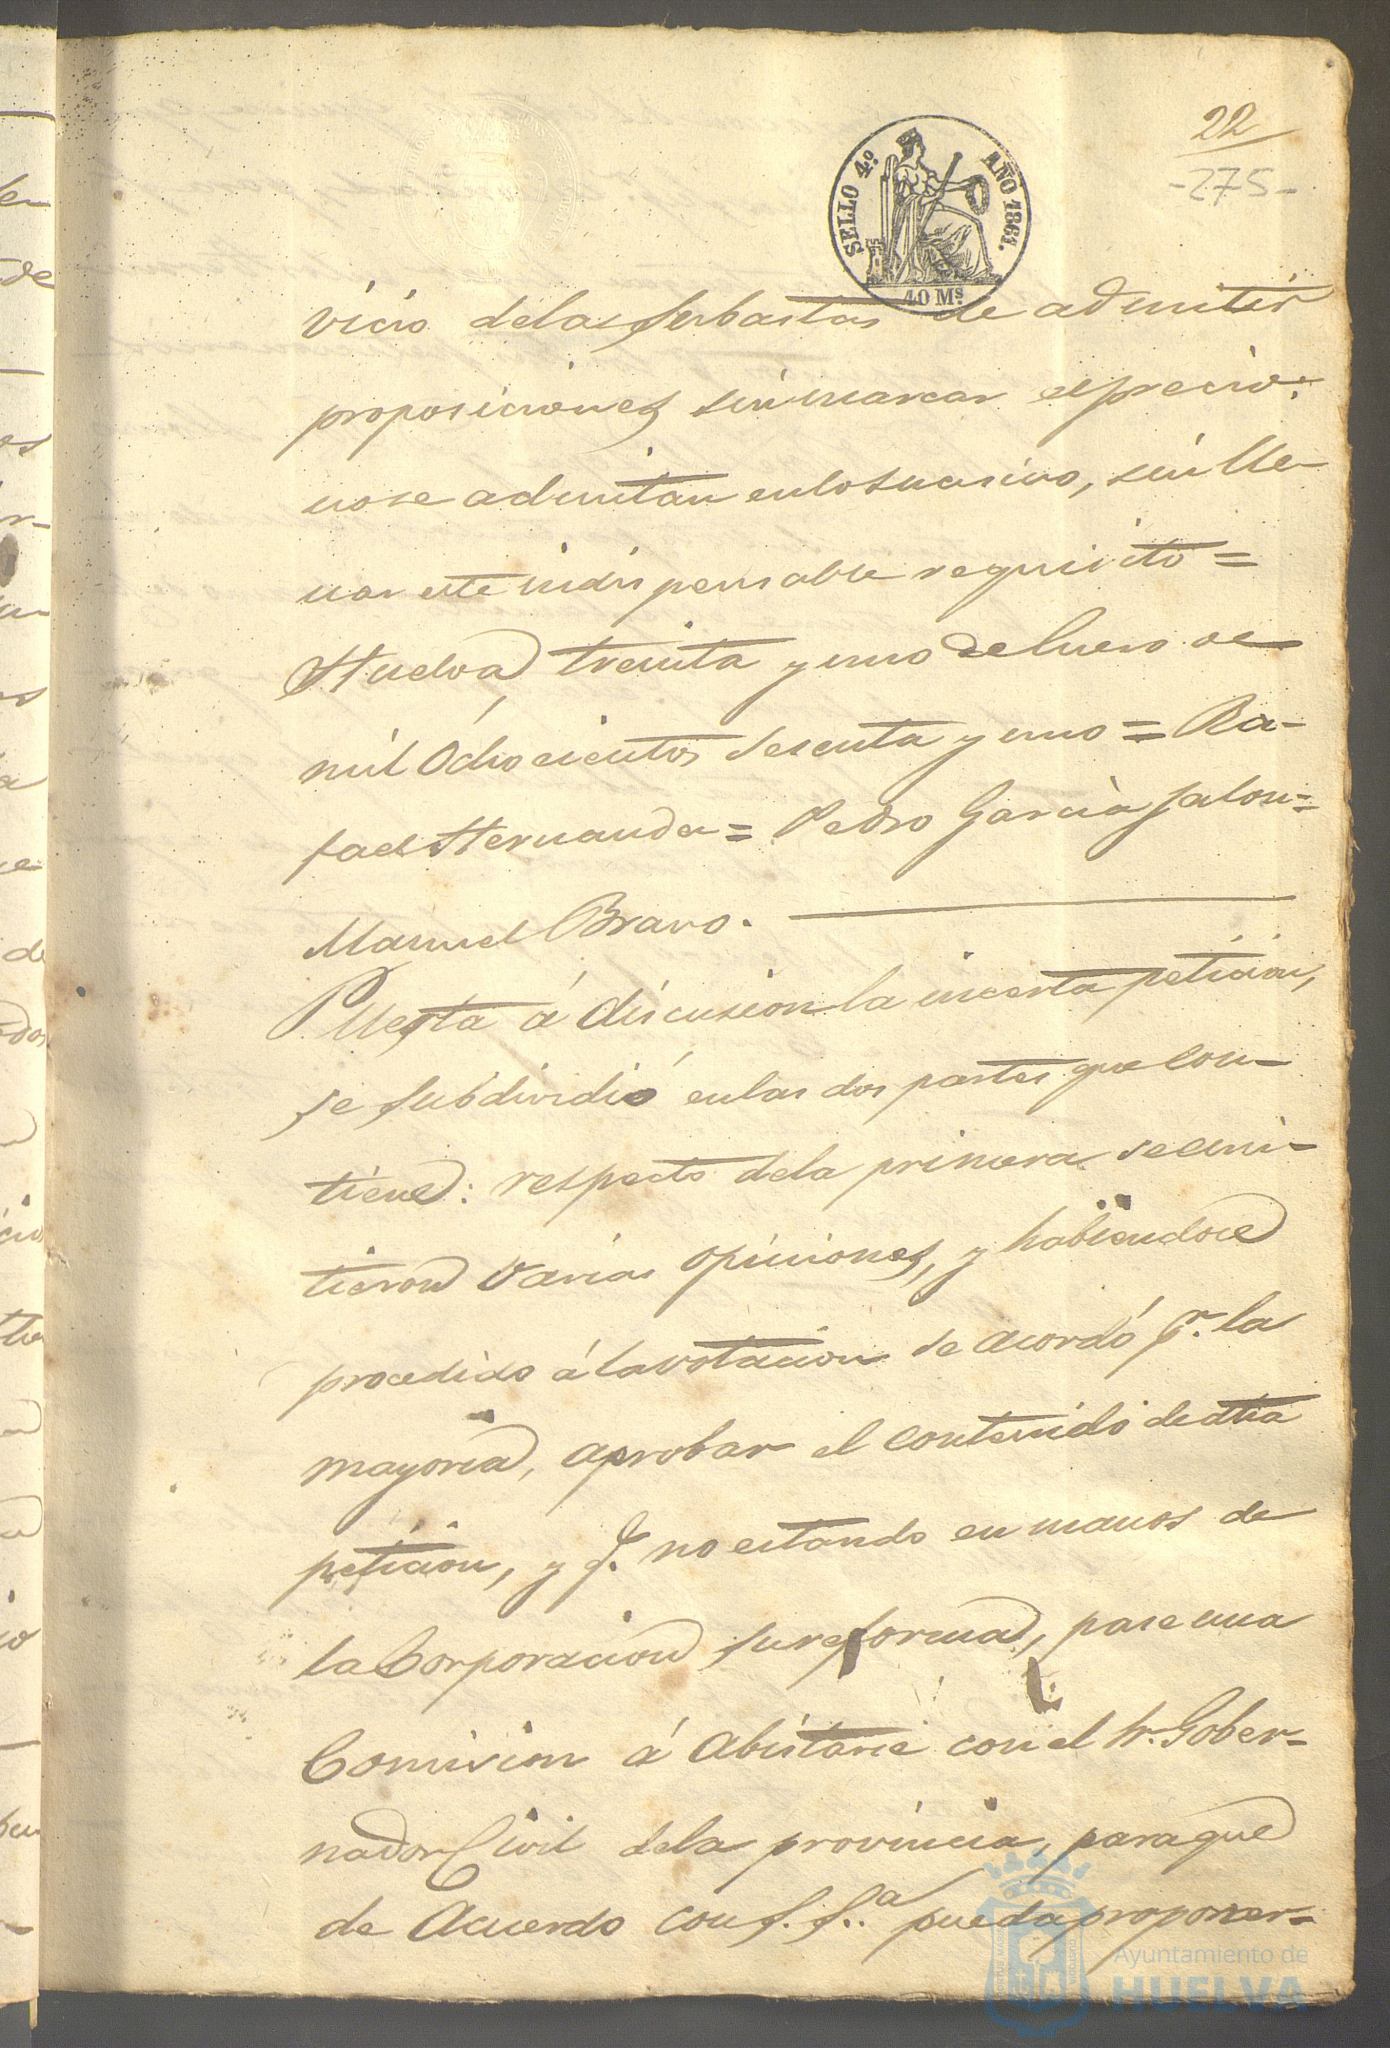 22
-275-
SELLO 4º. AÑO 1861.
40 Ms
vicio delas subastas de admitir
proposiciones sin marcar el precio:
nose admitan enlo sucesivo, sin lle-
nar este indispensable requisito =
Huelva, treinta y uno de Enero de
mil Ochocientos sesenta y uno = Ra-
fael Hernandez = Pedro Garcia Jalon =
Manuel Bravo.
Puesta á discusion la incerta peticion,
se subdividió enlas dos partes que con-
tiene: respecto dela primera se emi-
tieron varias opiniones, y habiendose
procedido á la votacion se acordó pr. la
mayoria, aprobar el contenido de dha
peticion, y q. no estando en manos de
la Corporacion su reforma, pase una
Comision á abistarse con el Sr. Gober-
nador Civil dela provincia, paraque
de Acuerdo con S. S.ª pueda proponer-
Ayuntamiento de
HUELVA